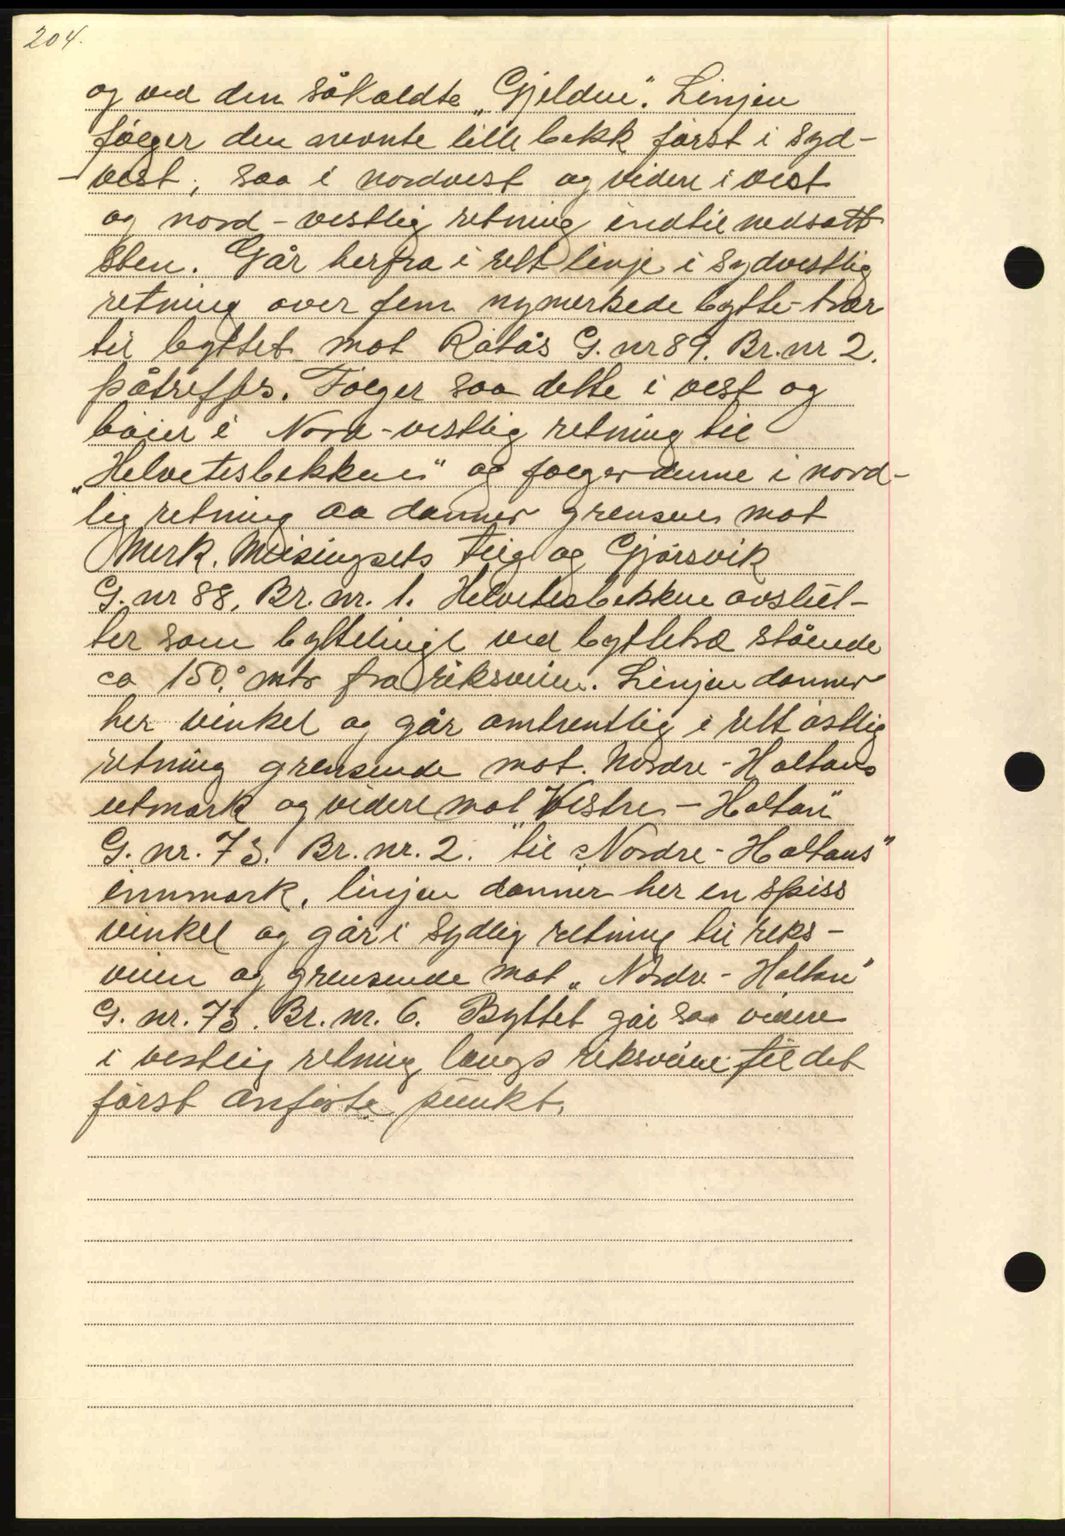 204.
og ved den såkaldte „Gjeldne". Linjen
følger den nevnte lille bekk først i syd-
-vest, saa i nordvest og videre i vest
og nord-vestlig retning indtil nedsatt
sten. Går herfra i rett linje i sydvestlig
retning over fem nymerkede bytte-trær
til byttet mot Råtås G. nr 89. Br. nr 2.
påtreffes. Følger saa dette i vest og
bøier i Nord-vestlig retning til
„Helvetesbekken" og følger denne i nord-
lig retning aa danner grensen mot
Merk. Meisingsets teig og Gjørsvik
G. nr 88, Br. nr. 1. Helvetesbekken avslut-
ter som byttelinje ved byttetræ stående
ca 150,° mtr fra riksveien. Linjen danner
her vinkel og går omtrentlig i rett østlig
retning grensende mot Nordre-Holtans
utmark og videre mot Vestre-Holtan"
G. nr. 73. Br. nr. 2. til „Nordre-Holtans"
innmark, linjen danner her en spiss
vinkel og går i sydlig retning til riks-
veien og grensende mot „Nordre-Holtan"
G. nr. 73. Br. nr. 6. Byttet går saa videre
i vestlig retning langs riksveien til det
først anførte punkt.